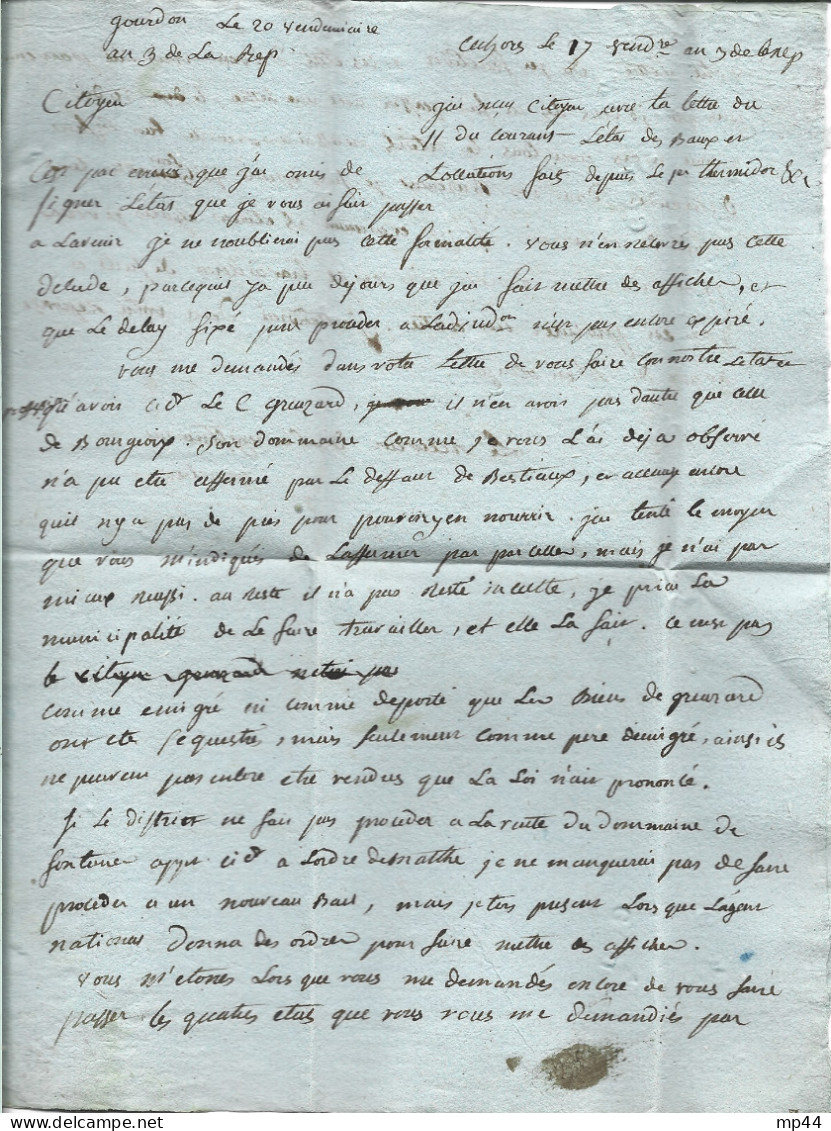 gourdon Le 20 vendemiaire
an 3 de La Rep
Cahors Le 17 vend.re an 3 de La rep
Citoyen
j'ai reçu citoyen avec ta lettre du
11 du courant L'état des Baux et
Locations faits depuis Le 1er thermidor &c
C'es par erreur que j'ai omis de
signer L'etat que je vous ai fait passer
a L'avenir je ne n'oublierai pas cette formalité. vous n'en recevrés pas cette
decade, parcequil y a peu de jours que j'ai fait mettre des affiches, et
que Le delay fixé pour proceder a Ladjud.on n'est pas encore expiré.
vous me demandés dans votre Lettre de vous faire connoitre Letat
avoit Le C greuzard, il n'en avoit pas d'autre que celle
de Bourgeois. Son dommaine comme je vous L'ai deja observé
n'a pu etre affermé par Le deffaut de Bestiaux, et
quil n'y a pas de pres pour pouvoir y en nourrir. j'ai tenté le moyen
que vous m'indiqués de Laffermer par parcelles, mais je n'ai pas
mieux reussi. au reste il n'a pas resté inculte, je priai La
municipalité de Le faire travailler, et elle La fait. ce n'est pas
comme emigré ni comme deporté que Les Biens de greuzard
ont eté sequestrés, mais seulement comme pere d'emigré, ainsi ils
ne peuvent pas encore etre vendus que La Loi n'ait prononcé.
Si Le district ne fait pas proceder a La vente du dommaine de
a Lordre de malthe je ne manquerai pas de faire
proceder a un nouveau Bail, mais j'etois present Lors que L'agent
national donna des ordres pour faire mettre des affiches.
vous m'etonés Lors que vous me demandés encore de vous faire
passer les quatres etats que vous vous me demandiés par
mp44